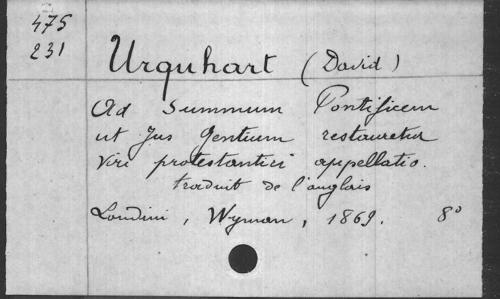 475
231
Urquhart (David)
Ad Summum Pontificem
ut Jus Gentium restauretur
viri protestantici appellatio.
traduit de l'anglais
Londini, Wyman, 1869. 8°